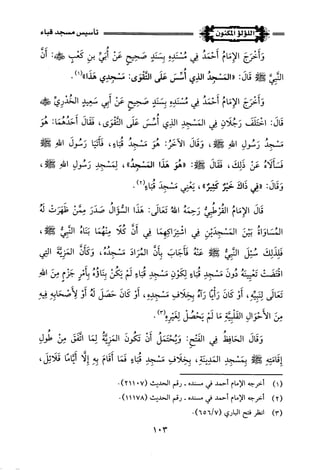 اللؤلؤ المكنون
تأسيس مسجد قباء
وَأَخْرَجَ الإِمَامُ أَحْمَدُ فِي مُسْنَدِهِ بِسَنَدٍ صَحِيحٍ عَنْ أُبَيِّ بنِ كَعْبٍ ﷺ: أَنَّ
النَّبِيَّ ﷺ قَالَ: «المَسْجِدُ الذِي أُسِّسَ عَلَى التَّقْوَى: مَسْجِدِي هَذَا»(١).
وَأَخْرَجَ الإِمَامُ أَحْمَدُ فِي مُسْنَدِهِ بِسَنَدٍ صَحِيحٍ عَنْ أَبِي سَعِيدٍ الخُدْرِيِّ
قَالَ: اخْتَلَفَ رَجُلَانِ فِي المَسْجِدِ الذِي أُسِّسَ عَلَى التَّقْوَى، فَقَالَ أَحَدُهُمَا: هُوَ
مَسْجِدُ رَسُولِ اللهِ ﷺ، وَقَالَ الآخَرُ: هُوَ مَسْجِدُ قُبَاءٍ، فَأَتَيَا رَسُولَ اللهِ ﷺ،
فَسَأَلَاهُ عَنْ ذَلِكَ، فَقَالَ ﷺ: «هُوَ هَذَا المَسْجِدُ»، لِمَسْجِدِ رَسُولِ اللهِ ﷺ،
وَقَالَ: «فِي ذَاكَ خَيْرٌ كَثِيرٌ»، يَعْنِي مَسْجِدَ قُبَاءٍ(٢).
قَالَ الإِمَامُ القُرْطُبِيُّ رَحِمَهُ اللهُ تَعَالَى: هَذَا السُّؤَالُ صَدَرَ مِمَّنْ ظَهَرَتْ لَهُ
المُسَاوَاةُ بَيْنَ المَسْجِدَيْنِ فِي اشْتِرَاكِهِمَا فِي أَنَّ كُلًّا مِنْهُمَا بَنَاهُ النَّبِيُّ ﷺ،
فَلِذَلِكَ سُئِلَ النَّبِيُّ ﷺ عَنْهُ فَأَجَابَ بِأَنَّ المُرَادَ مَسْجِدُهُ، وَكَأَنَّ المَزِيَّةَ التِي
اقْتَضَتْ تَعْيِينَهُ دُونَ مَسْجِدِ قُبَاءٍ لِكَوْنِ مَسْجِدِ قُبَاءٍ لَمْ يَكُنْ بِنَاؤُهُ بِأَمْرٍ جَزْمٍ مِنَ اللهِ
تَعَالَى لِنَبِيِّهِ، أَوْ كَانَ رَأْيًا رَآهُ بِخِلَافِ مَسْجِدِهِ، أَوْ كَانَ حَصَلَ لَهُ أَوْ لِأَصْحَابِهِ فِيهِ
مِنَ الأَحْوَالِ القَلْبِيَّةِ مَا لَمْ يَحْصُلْ لِغَيْرِهِ(٣).
وَقَالَ الحَافِظُ فِي الفَتْحِ: وَيُحْتَمَلُ أَنْ تَكُونَ المَزِيَّةُ لِمَا اتَّفَقَ مِنْ طُولِ
إِقَامَتِهِ ﷺ بِمَسْجِدِ المَدِينَةِ، بِخِلَافِ مَسْجِدِ قُبَاءٍ فَمَا أَقَامَ بِهِ إِلَّا أَيَّامًا قَلَائِلَ،
(١) أخرجه الإمام أحمد في مسنده - رقم الحديث (٢١١٠٧).
(٢) أخرجه الإمام أحمد في مسنده - رقم الحديث (١١١٧٨).
(٣) انظر فتح الباري (٦٥٦/٧).
١٠٣